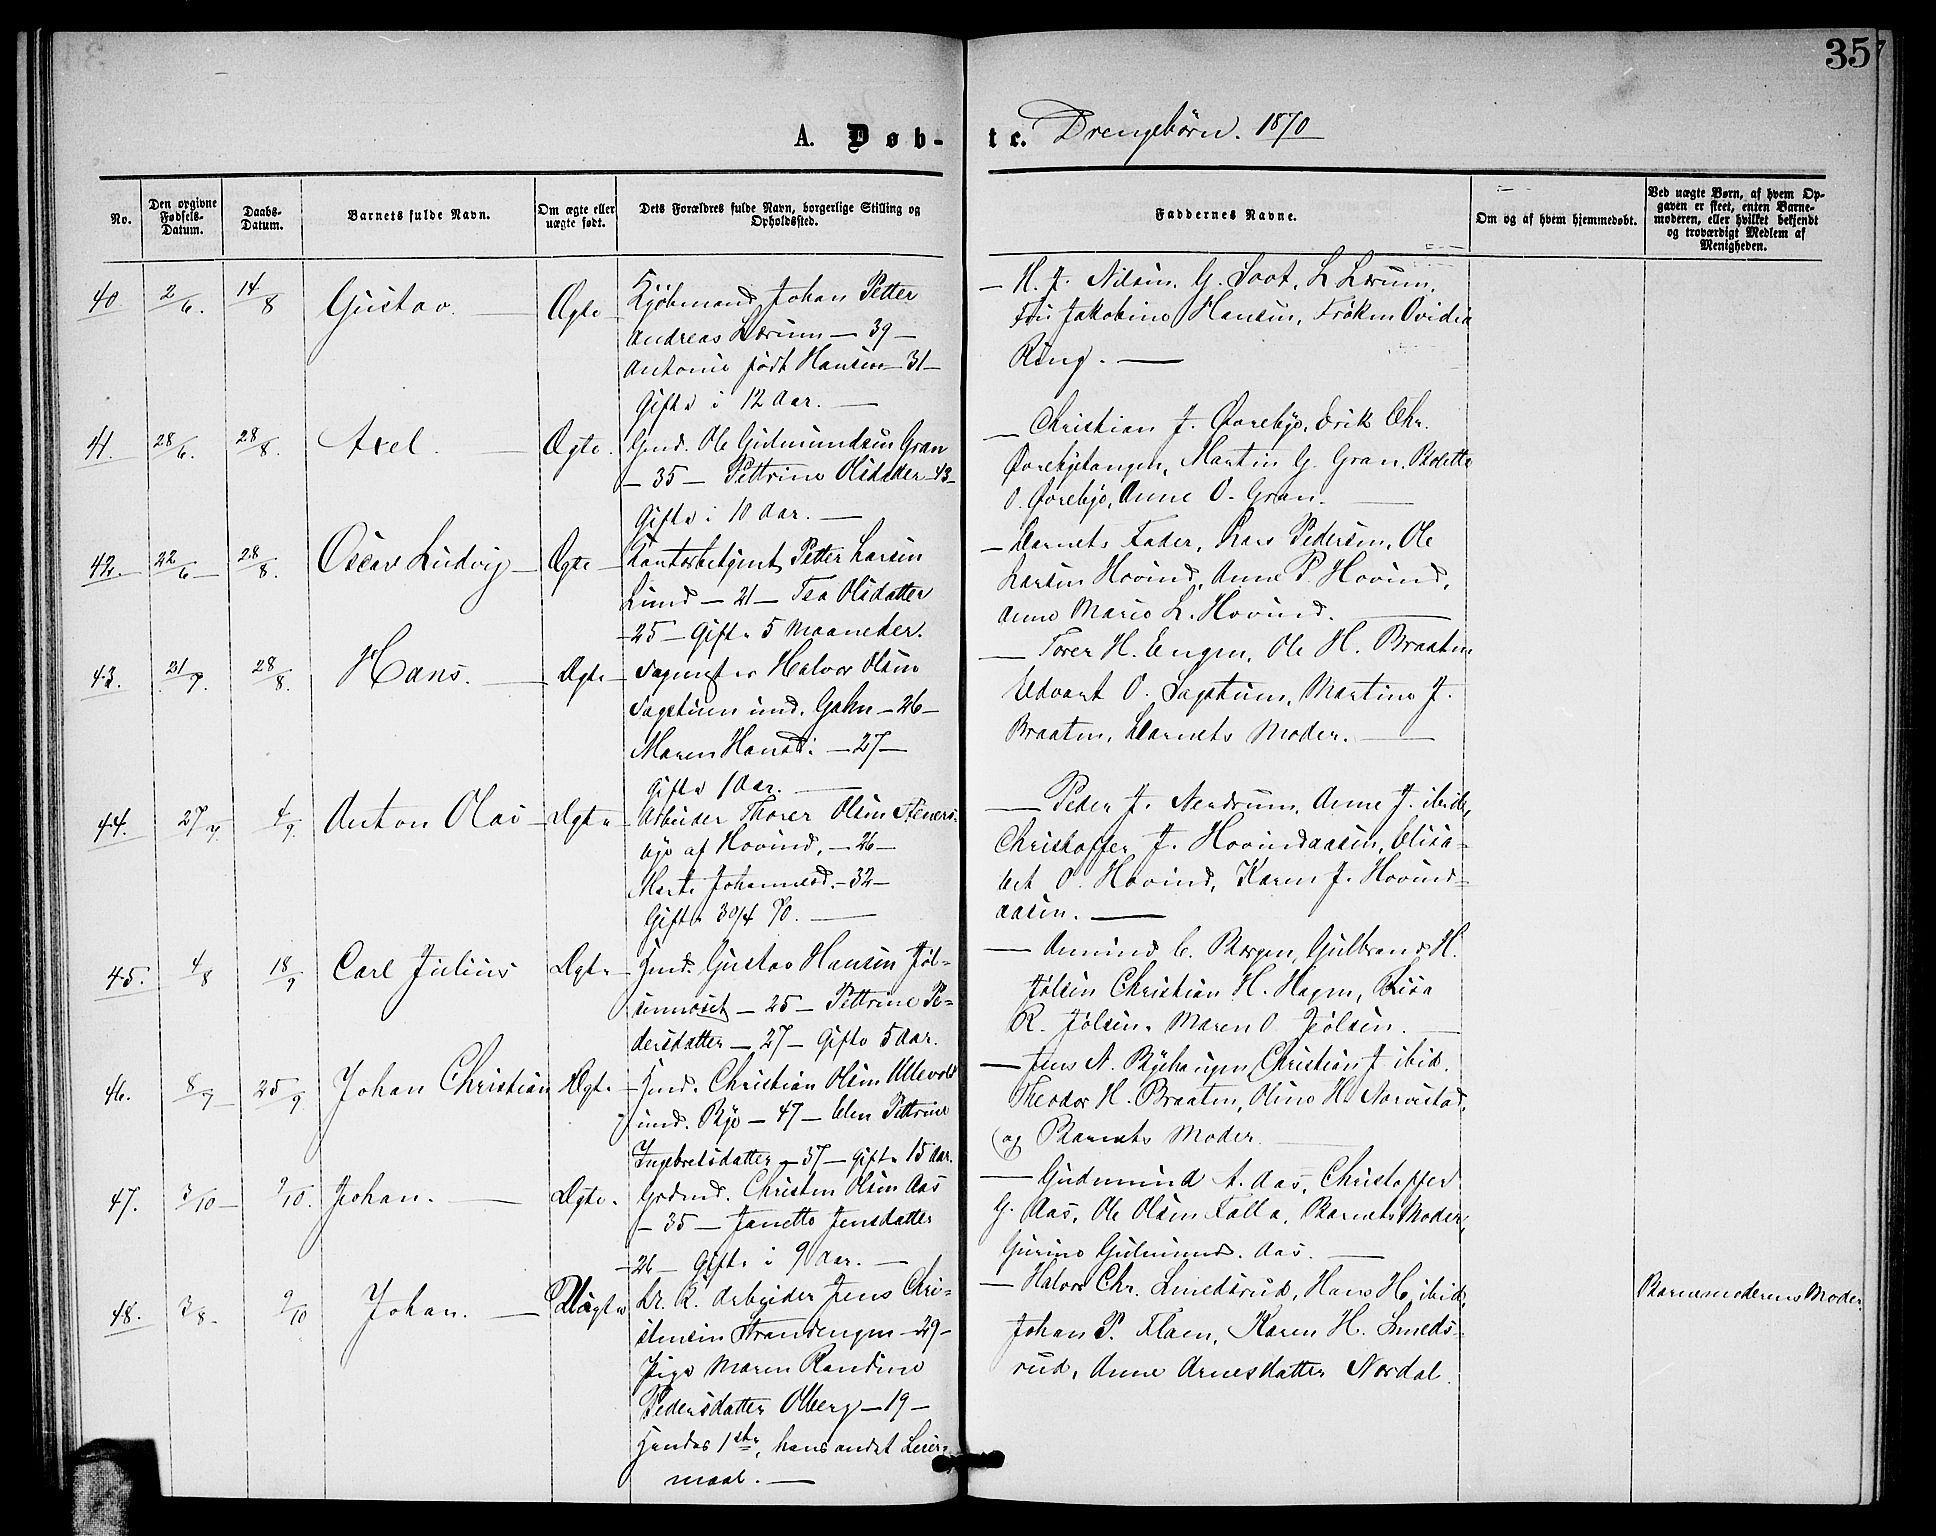 35
A. Døb-
te. Drengebørn. 1870
No.
Den opgivne Fødsels-Datum.
Daabs-Datum.
Barnets fulde Navn.
Om ægte eller uægte født.
Dets Forældres fulde Navn, borgerlige Stilling og Opholdssted.
Faddernes Navne.
Om og af hvem hjemmedøbt.
Ved uægte Børn, af hvem Opgaven er skeet, enten Barnemoderen, eller hvilket bekjendt og troværdigt Medlem af Menigheden.
40 2/6. 14/8 Gustav. — Ægte — Kjøbmand Johan Petter
Andreas Lærum — 39 —
Antonie født Hansen — 31 —
Gifte i 12 Aar. —
— H. J. Nilsen, G. Soot, L Lærum,
Fru Jakobine Hansen, Frøken Ovidia
Ring. —
41. 28/6. 28/8. Axel. — Ægte. Gmd. Ole Gudmundsen Gran
— 35 — Pettrine Olsdatter — 43 —
Gifte i 10 Aar. —
— Christian J. Ørebye, Erik Chr.
Martin G. Gran,
Anne O. Gran. —
42. 22/6 — 28/8. Oscar Ludvig — Ægte — Petter Larsen
Lund — 21 — Tea Olsdatter
— 25 — Gifte 5 Maaneder.
— Barnets Fader, Lars Pedersen, Ole
Larsen Hovind, Anne P. Hovind,
Anne Marie L. Hovind. —
43. 28/8. Hans. — Ægte — Sagmester Halvor Olsen
Sagstuen und. — 26 —
Maren Hansd: — 27 —
Gifte 1 Aar. —
— Torer H. Engen, Ole H. Braaten
Edvart O. Sagstuen, Martine J.
Braaten, Barnets Moder. —
44. 4/9. Anton Olai — Ægte — Arbeider Thorer Olsen Steners-
bye af Hovind, — 26 —
Marte Johannesd. — 32 —
Gifte 30/4 70. —
— Peder J. Nordrum, Anne J. ibid,
Christoffer J. Hovindaasen, Elisa-
bet O. Hovind, Karen J. Hovind-
aasen. —
45. 4/8 18/9 Carl Julius Ægte — Hmd. Gustav Hansen Jøl-
senmoset — 25 — Pettrine Pe-
dersdatter — 27 — Gifte 5 Aar.
— Amund C. Borgen, Gulbrand H.
Jølsen Christian H. Hagen, Lisa
R. Jølsen, Maren O. Jølsen. —
46. 8/9 25/9 Johan Christian Ægte — Hmd. Christian Olsen Ullevold
und. Bye — 47 — Elen Pettrine
Ingebretsdatter — 37 — Gifte 15 Aar.
— Jens N. Byehaugen, Christian J ibid.
Theodor H. Braaten, Oline H.
og Barnets Moder. —
47. 3/10 — 9/10. Johan. — Ægte. Grdmd. Christen Olsen Aas
— 35 — Janette Jensdatter
— 26 — Gifte i 9 Aar. —
— Gudmund A. Aas, Christoffer
G. Aas, Ole Olsen Falla, Barnets Moder,
Gurine Gudmunds. Aas. —
48. 3/8 — 9/10 Johan. — Uægte Arbeider Jens Chri-
stensen Strandengen — 29 —
Pige Maren Randine
Pedersdatter Olberg — 19 —
hendes 1ste, hans andet Leier-
maal. —
— Halvor Chr. Smedsrud, Hans H. ibid,
Johan P. Flaen, Karen H. Smeds-
rud, Anne Arnesdatter Nordal.
Barnemoderens Moder.